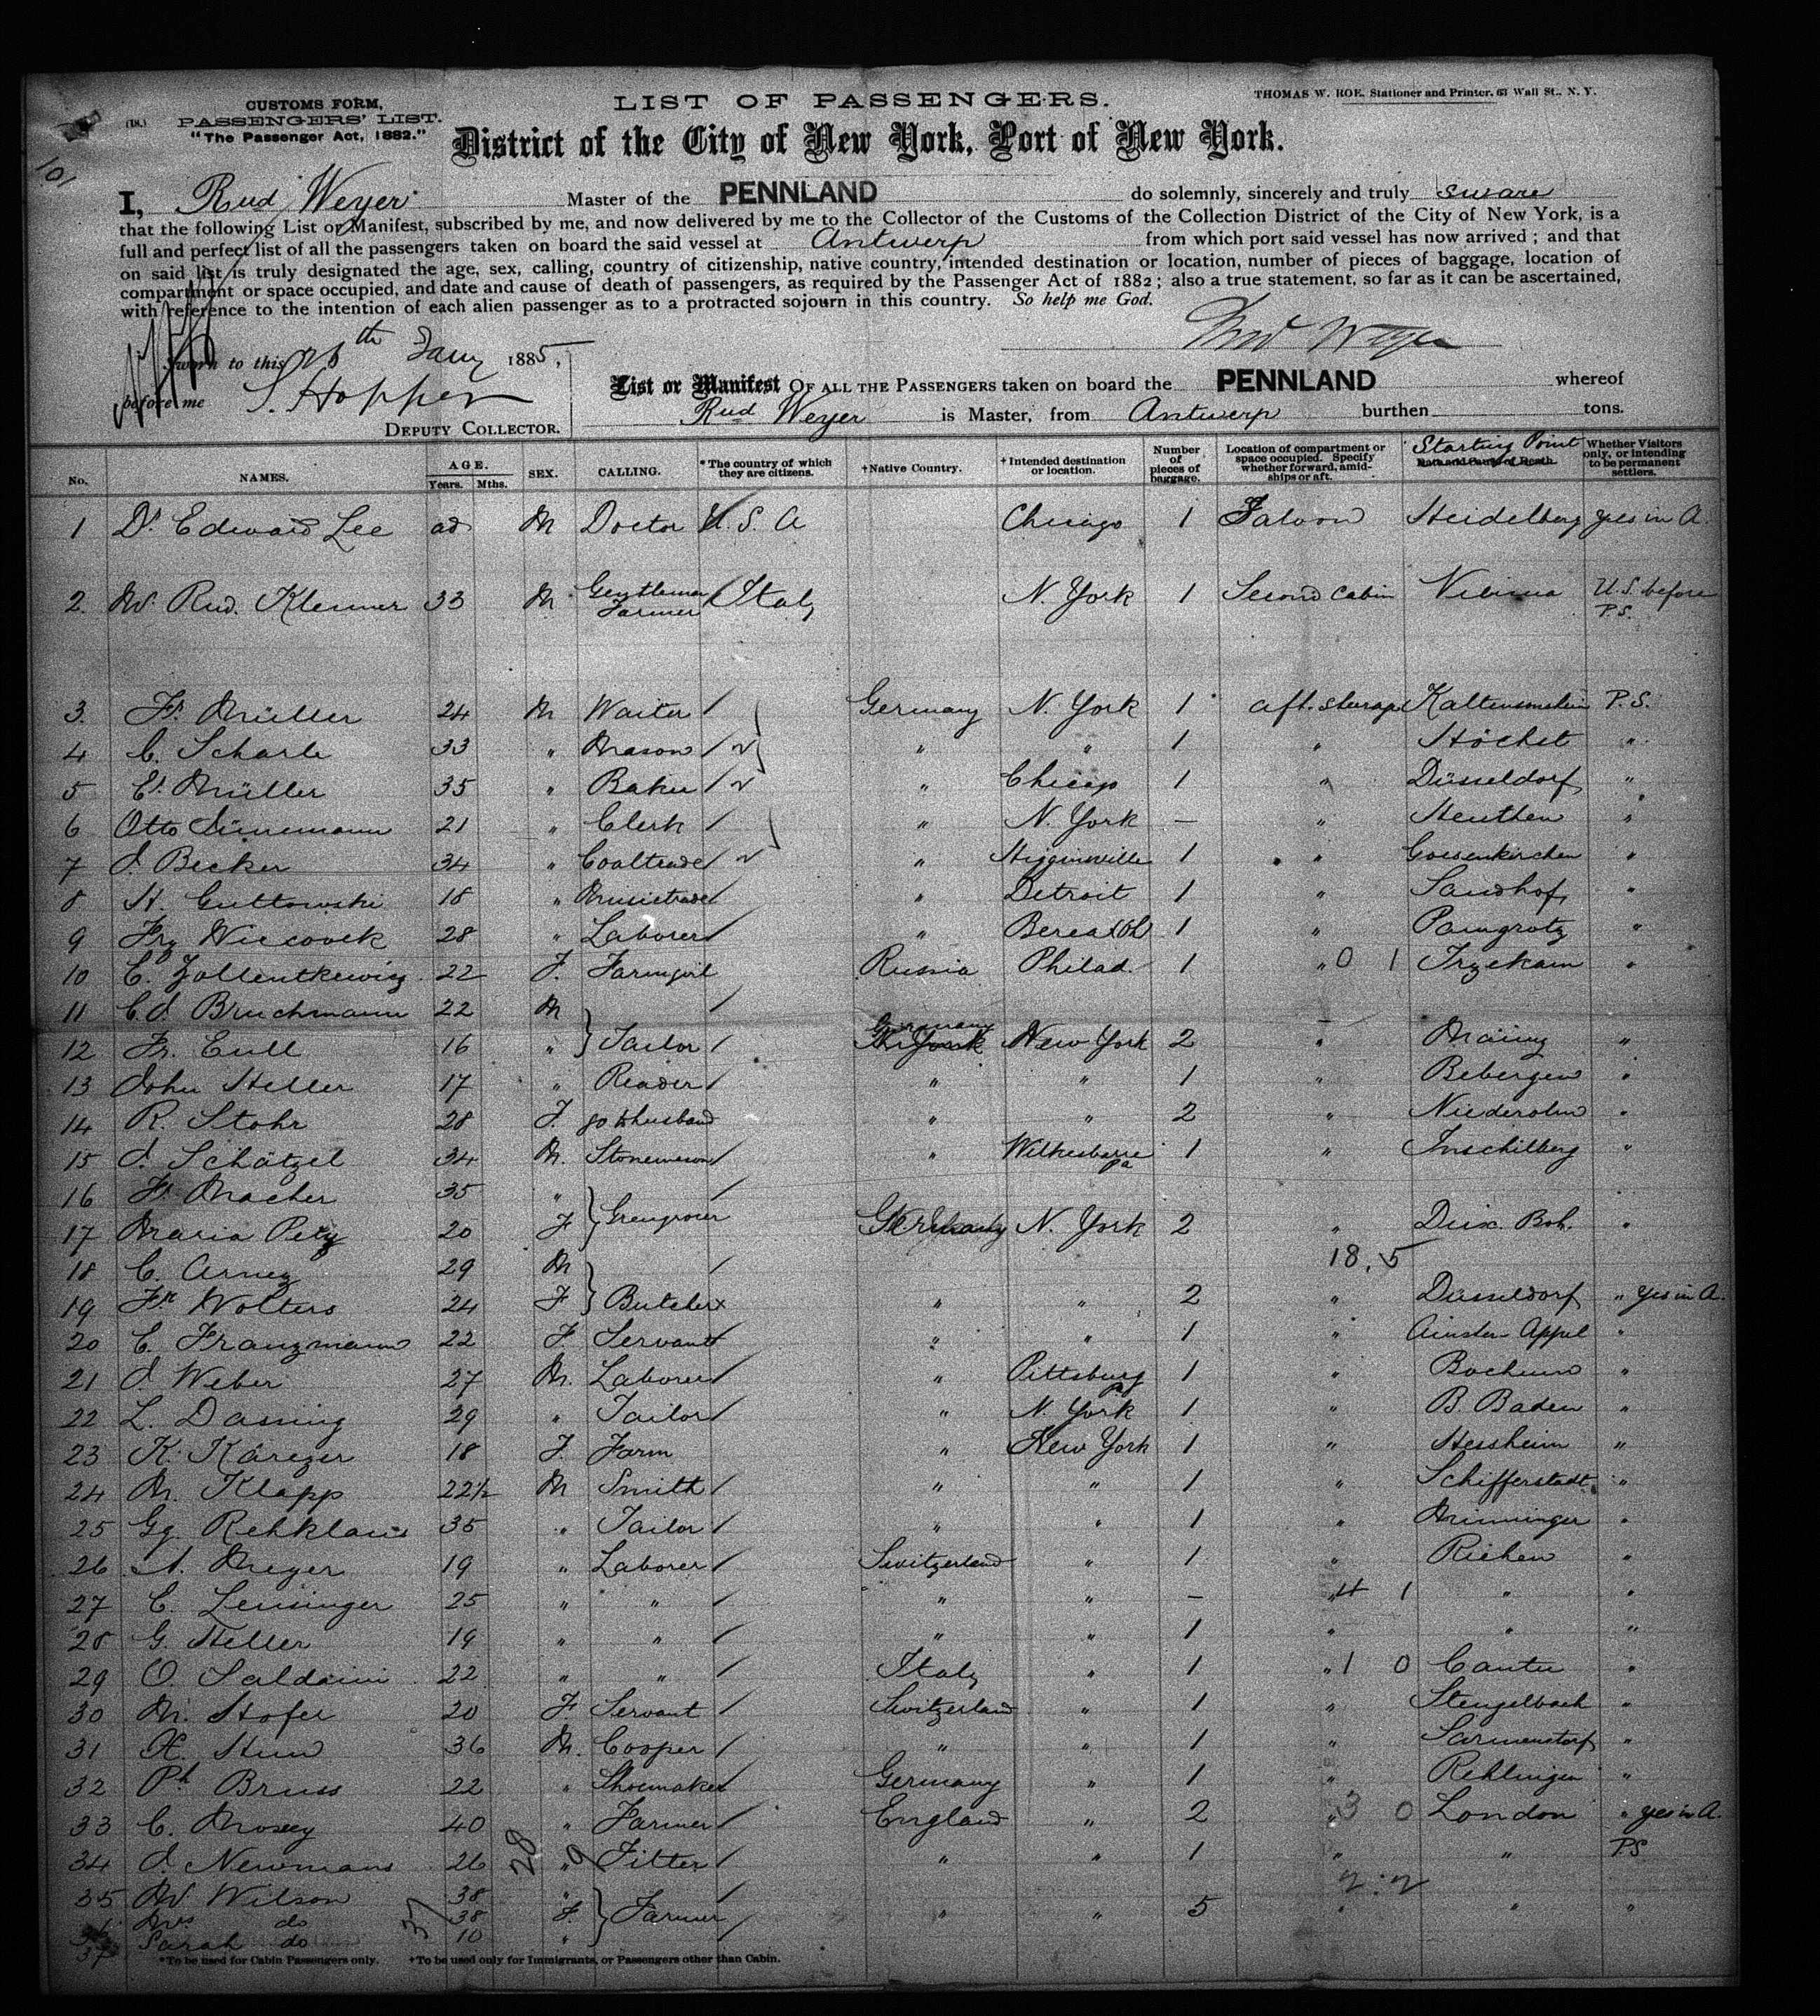 CUSTOMS FORM,
PASSENGERS' LIST.
"The Passenger Act, 1882."
101
LIST OF PASSENGERS.
THOMAS W. ROE, Stationer and Printer, 63 Wall St., N. Y.
District of the City of New York, Port of New York.
I, Rud Weyer Master of the PENNLAND do solemnly, sincerely and truly sware
that the following List or Manifest, subscribed by me, and now delivered by me to the Collector of the Customs of the Collection District of the City of New York, is a
full and perfect list of all the passengers taken on board the said vessel at Antwerp from which port said vessel has now arrived ; and that
on said list is truly designated the age, sex, calling, country of citizenship, native country, intended destination or location, number of pieces of baggage, location of
compartment or space occupied, and date and cause of death of passengers, as required by the Passenger Act of 1882 ; also a true statement, so far as it can be ascertained,
with reference to the intention of each alien passenger as to a protracted sojourn in this country. So help me God.
Rud Weyer
Sworn to this 26th Jany 1885,
before me S. Hopper
DEPUTY COLLECTOR.
List or Manifest OF ALL THE PASSENGERS taken on board the PENNLAND whereof
Rud Weyer is Master, from Antwerp burthen tons.
No. NAMES. AGE. Years. Mths. SEX. CALLING. *The country of which they are citizens. †Native Country. †Intended destination or location. Number of pieces of baggage. Location of compartment or space occupied. Specify whether forward, amidships or aft. Starting Point Date and Cause of Death. Whether Visitors only, or intending to be permanent settlers.
1 Dr Edward Lee ad M Doctor U. S. A Chicago 1 Saloon Heidelberg yes in A.
2. Mr. Rud. Klemmer 33 M Gentleman Farmer Italy N. York 1 Second Cabin U.S. before P.S.
3. Fr. Müller 24 M Waiter Germany N. York 1 aft. steerage P.S.
4 C. Scharle 33 " Mason " " 1 " Höchst "
5 E. Müller 35 " Baker " Chicago 1 " Düsseldorf "
6 Otto 21 " Clerk " N. York — " "
7 J. Becker 34 " Coaltrade " Higginsville 1 " "
8 H. Guttowski 18 " Musictrade " Detroit 1 " Sandhof "
9 28 " Laborer " Berea (Oh) 1 " "
10 C. 22 F. Farmgirl Russia Philad. 1 " 0 1 "
11 C. J. Bruchmann 22 M
12 Fr. Cull 16 " } Tailor Germany New York 2 " Mainz "
13 John Heller 17 " " " 1 " Bebergen "
14 R. Stohr 28 F. go to husband " " 2 " Niederolm "
15 J. Schätzel 34 M. Stonemason " Wilkesbarre Pa 1 " "
16 Fr. Macher 35 "
17 Maria Petz 20 F } Greengrocer Germany N. York 2 " Dux. Boh. "
18 C. Arnez 29 M 18, 5
19 Fr. Wolters 24 F } Butcher " " 2 " Düsseldorf " yes in A.
20 C. Franzmann 22 F. Servant " " 1 " Appel "
21 J. Weber 27 M. Laborer " Pittsburg Pa 1 " Bochum "
22 L. Dassing 29 " Tailor " N. York 1 " B. Baden "
23 K. Kärezer 18 F. Farm " New York 1 " Hessheim "
24 M. Klapp 22½ M Smith " " 1 " Schifferstadt "
25 Gg. Rehklau 35 " Tailor " " 1 " "
26 A. Meyer 19 " Laborer Switzerland " 1 " Richen "
27 C. Leisinger 25 " " " " — " 4 1 " "
28 G. Heller 19 " " " " 1 " " "
29 O. Saldaini 22 " " Italy " 1 " 1 0 Cantu "
30 M. Hofer 20 F. Servant Switzerland " 1 " Stengelbach "
31 X. 36 M. Cooper " " 1 " Sarmenstorf "
32 Ph Bruss 22 " Shoemaker Germany " 1 " Rehlingen "
33 C. Moxey 40 " Farmer England " 2 " 3 0 London " yes in A.
34 J. Newmans 26 " Fitter " " 1 " " P.S
28 9
35 Mr Wilson 38 " 2.2
36 Mrs do 38 F. } Farmer " " 5 " " "
37 Sarah do 10 "
37
*To be used for Cabin Passengers only. †To be used only for Immigrants, or Passengers other than Cabin.